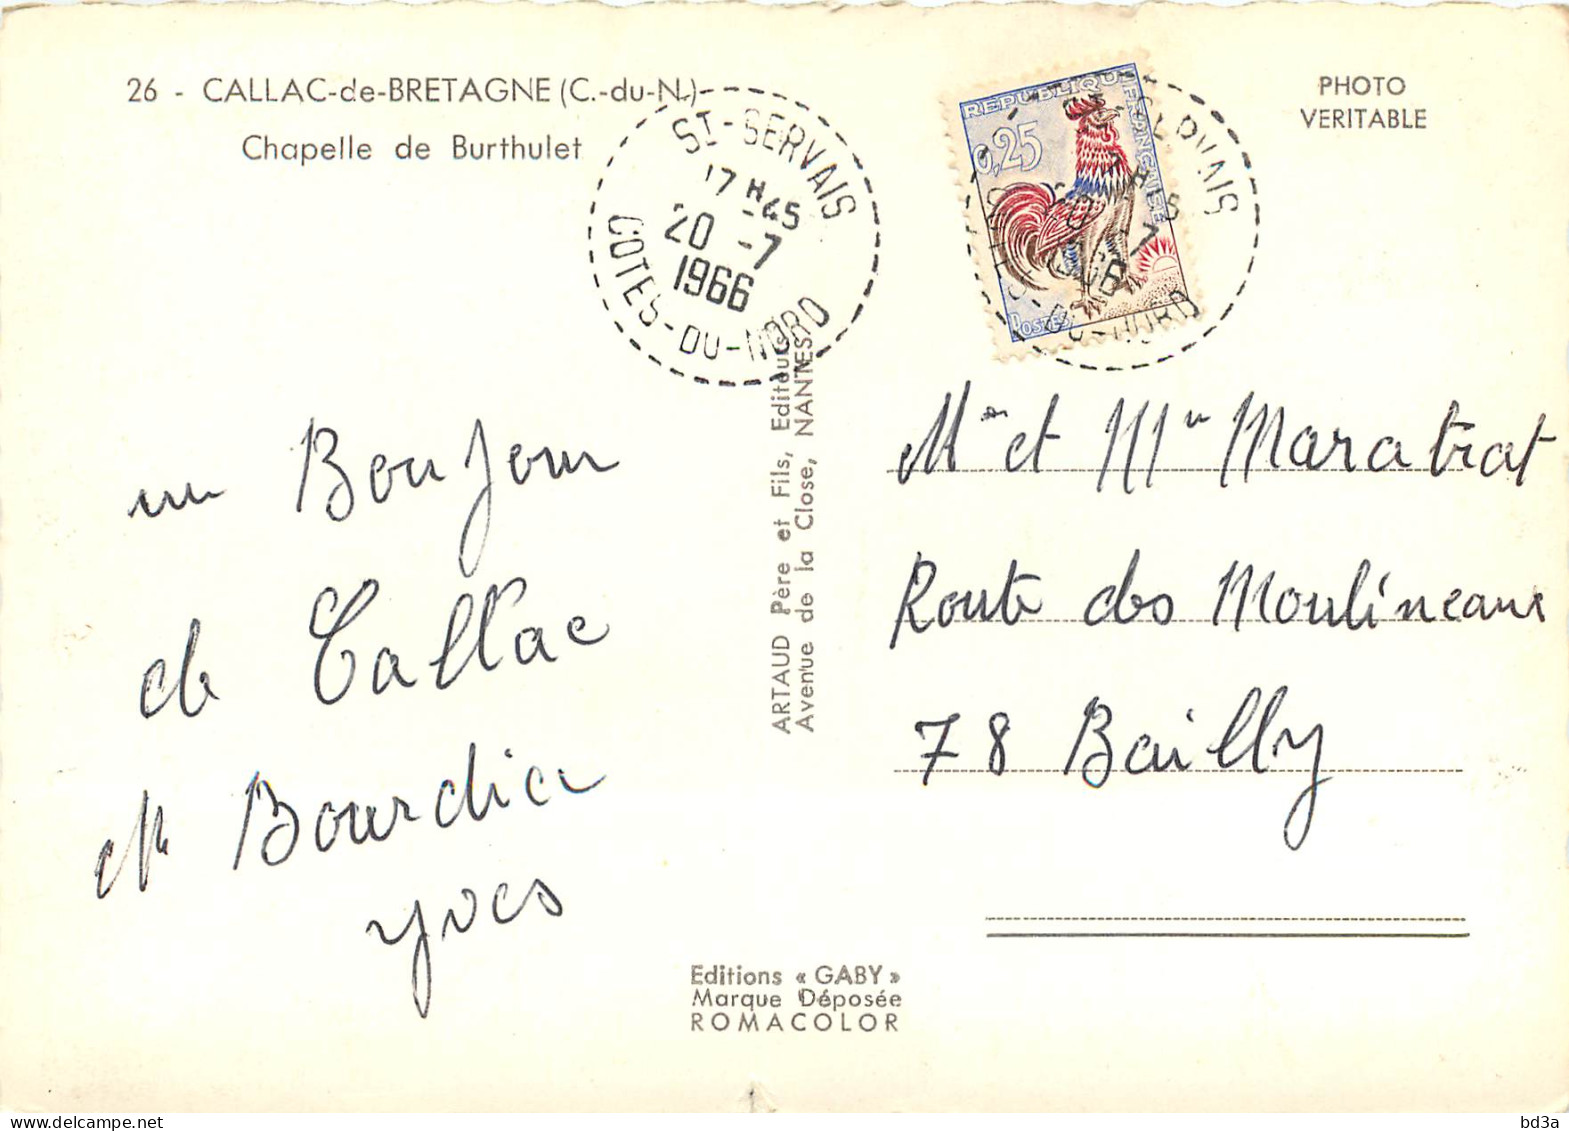 26 - CALLAC-de-BRETAGNE (C.-du-N.)
Chapelle de Burthulet
ST-SERVAIS
17 H 45
20 -7
1966
COTES-DU-NORD
REPUBLIQUE FRANÇAISE
0,25
POSTES
PHOTO
VERITABLE
un Bonjour
de Callac
Bourdier
yves
ARTAUD Père et Fils, Editeurs
Avenue de la Close, NANTES
Mme et Mr Maratrat
Route des Moulineaux
78 Bailly
Editions « GABY »
Marque Déposée
ROMACOLOR
bd3a